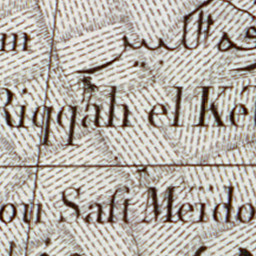 m
قه الكبير
Riqqah el Ké
ou Safi Méïdo